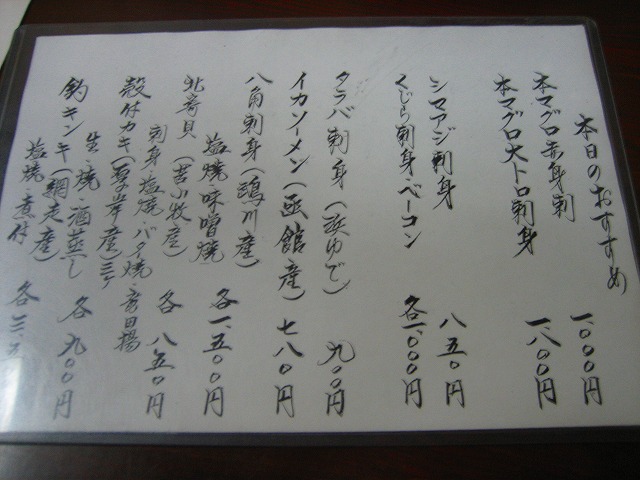 本日のおすすめ
本マグロ赤身刺 一、000円
本マグロ大トロ刺身 一、八00円
シマアジ刺身 八五0円
くじら刺身・ベーコン 各一、000円
タラバ刺身(浜ゆで) 九00円
イカソーメン(函館産) 七八0円
八角刺身(鵡川産)
塩焼・味噌焼 各一、五00円
北寄貝(苫小牧産)
刺身・塩焼・バタ焼・唐揚 各 八五0円
殻付カキ(厚岸産)三ケ
生・焼・酒蒸し 各 九00円
釣キンキ(網走産)
塩焼・煮付 各三、五